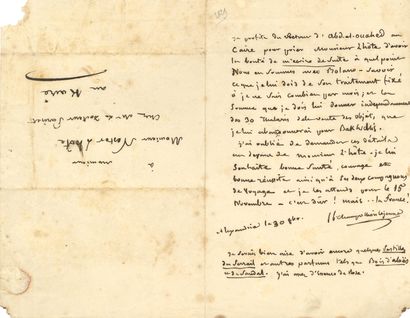 Je profite du retour d'Abdal-ouahed au
Caire pour prier Monsieur L'hôte d'avoir
la bonté de m'écrire de suite à quel point
Nous en sommes avec Rolano - Savoir
ce que je lui dois de son traitement fixé
à je ne sais combien par mois, et la
Somme que je dois lui donner indépendamment
des 30 thalaris de la vente des objets, que
je lui abandonnerai pour Bakhchis.
J'ai oublié de demander ces détails
au départ de monsieur l'hôte - je lui
Souhaite bonne Santé courage et
bonne réussite ainsi qu'à ses deux compagnons
de voyage et je les attends pour le 15
Novembre - c'est dur! mais.. la France!
Alexandrie le 30 7bre.
J. f. champollion le jeune
Je serais bien aise d'avoir encore quelques Pastilles
du Serrail et autres parfums tels que Bois d'aloës
et de Sandal. J'ai assez d'Essence de Rose.
à
monsieur
Monsieur Nestor L'hôte
Chez M. le docteur
au Kaire